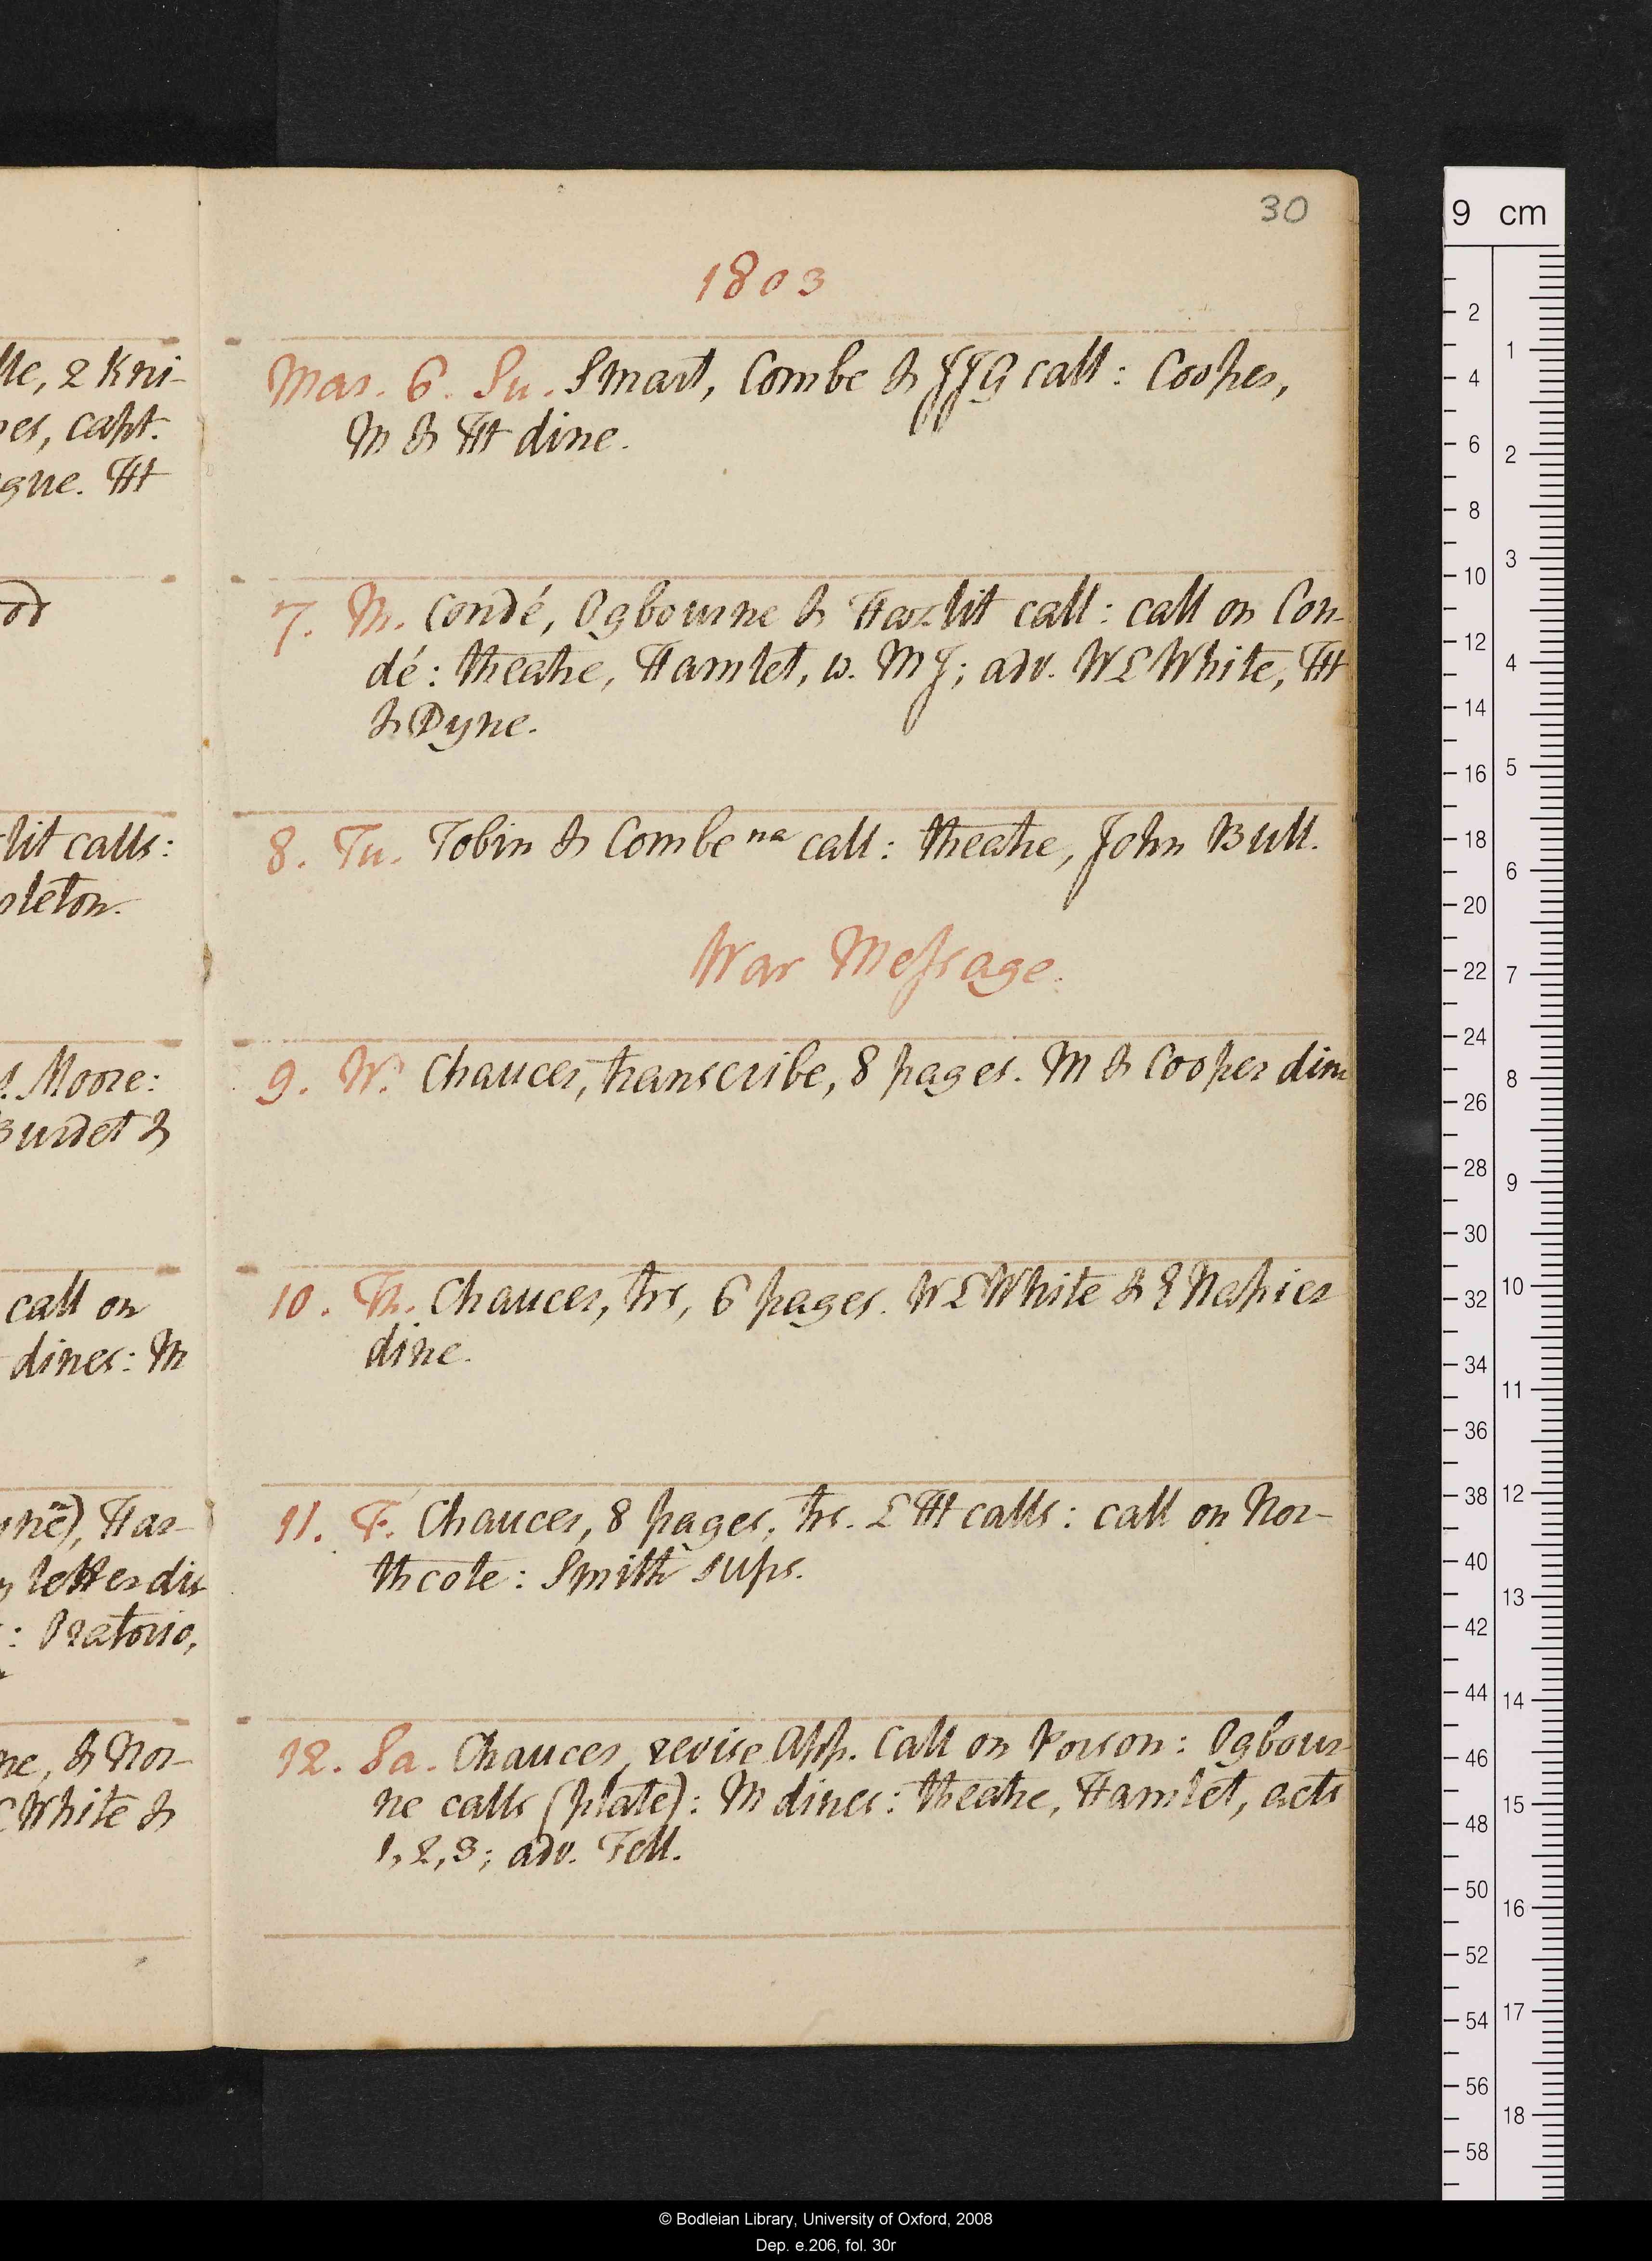 30
1803
lle, 2 Kni-
es, capt.
gue. TH
or
lit calls:
leton.
. Moore:
Burdet &
call on
dines: M
yne), Har-
letter dis
: Oratorio,
ne, & Nor-
C White &
Mar. 6. Su. Smart, Combe & JJG call: Cooper,
M & TH dine.
7. M. Condé, Ogbourne & Hazlit call: call on Con-
dé: theatre, Hamlet, w. MJ; adv. W L White, TH
& Dyne.
8. Tu. Tobin & Combe na call: theatre, John Bull.
War Message.
9. W. Chaucer, transcribe, 8 pages. M & Cooper dine
10. Th. Chaucer, trs, 6 pages. W L White & E Napier
dine.
11. F. Chaucer, 8 pages, trs. L TH calls: call on Nor-
thcote: Smith sups.
12. Sa. Chaucer, revise App. Call on Porson: Ogbour-
ne calls (plate): M dines: theatre, Hamlet, acts
1, 2, 3; adv. Fell.
9 cm
2
4
6
8
10
12
14
16
18
20
22
24
26
28
30
32
34
36
38
40
42
44
46
48
50
52
54
56
58
1
2
3
4
5
6
7
8
9
10
11
12
13
14
15
16
17
18
© Bodleian Library, University of Oxford, 2008
Dep. e.206, fol. 30r